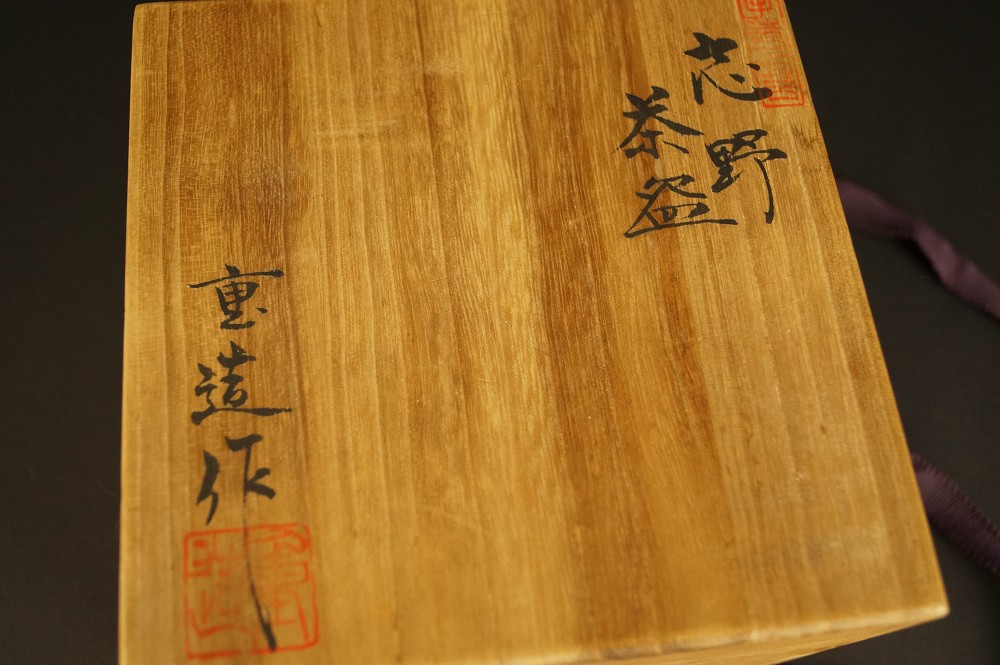 志野
茶盌
重造作